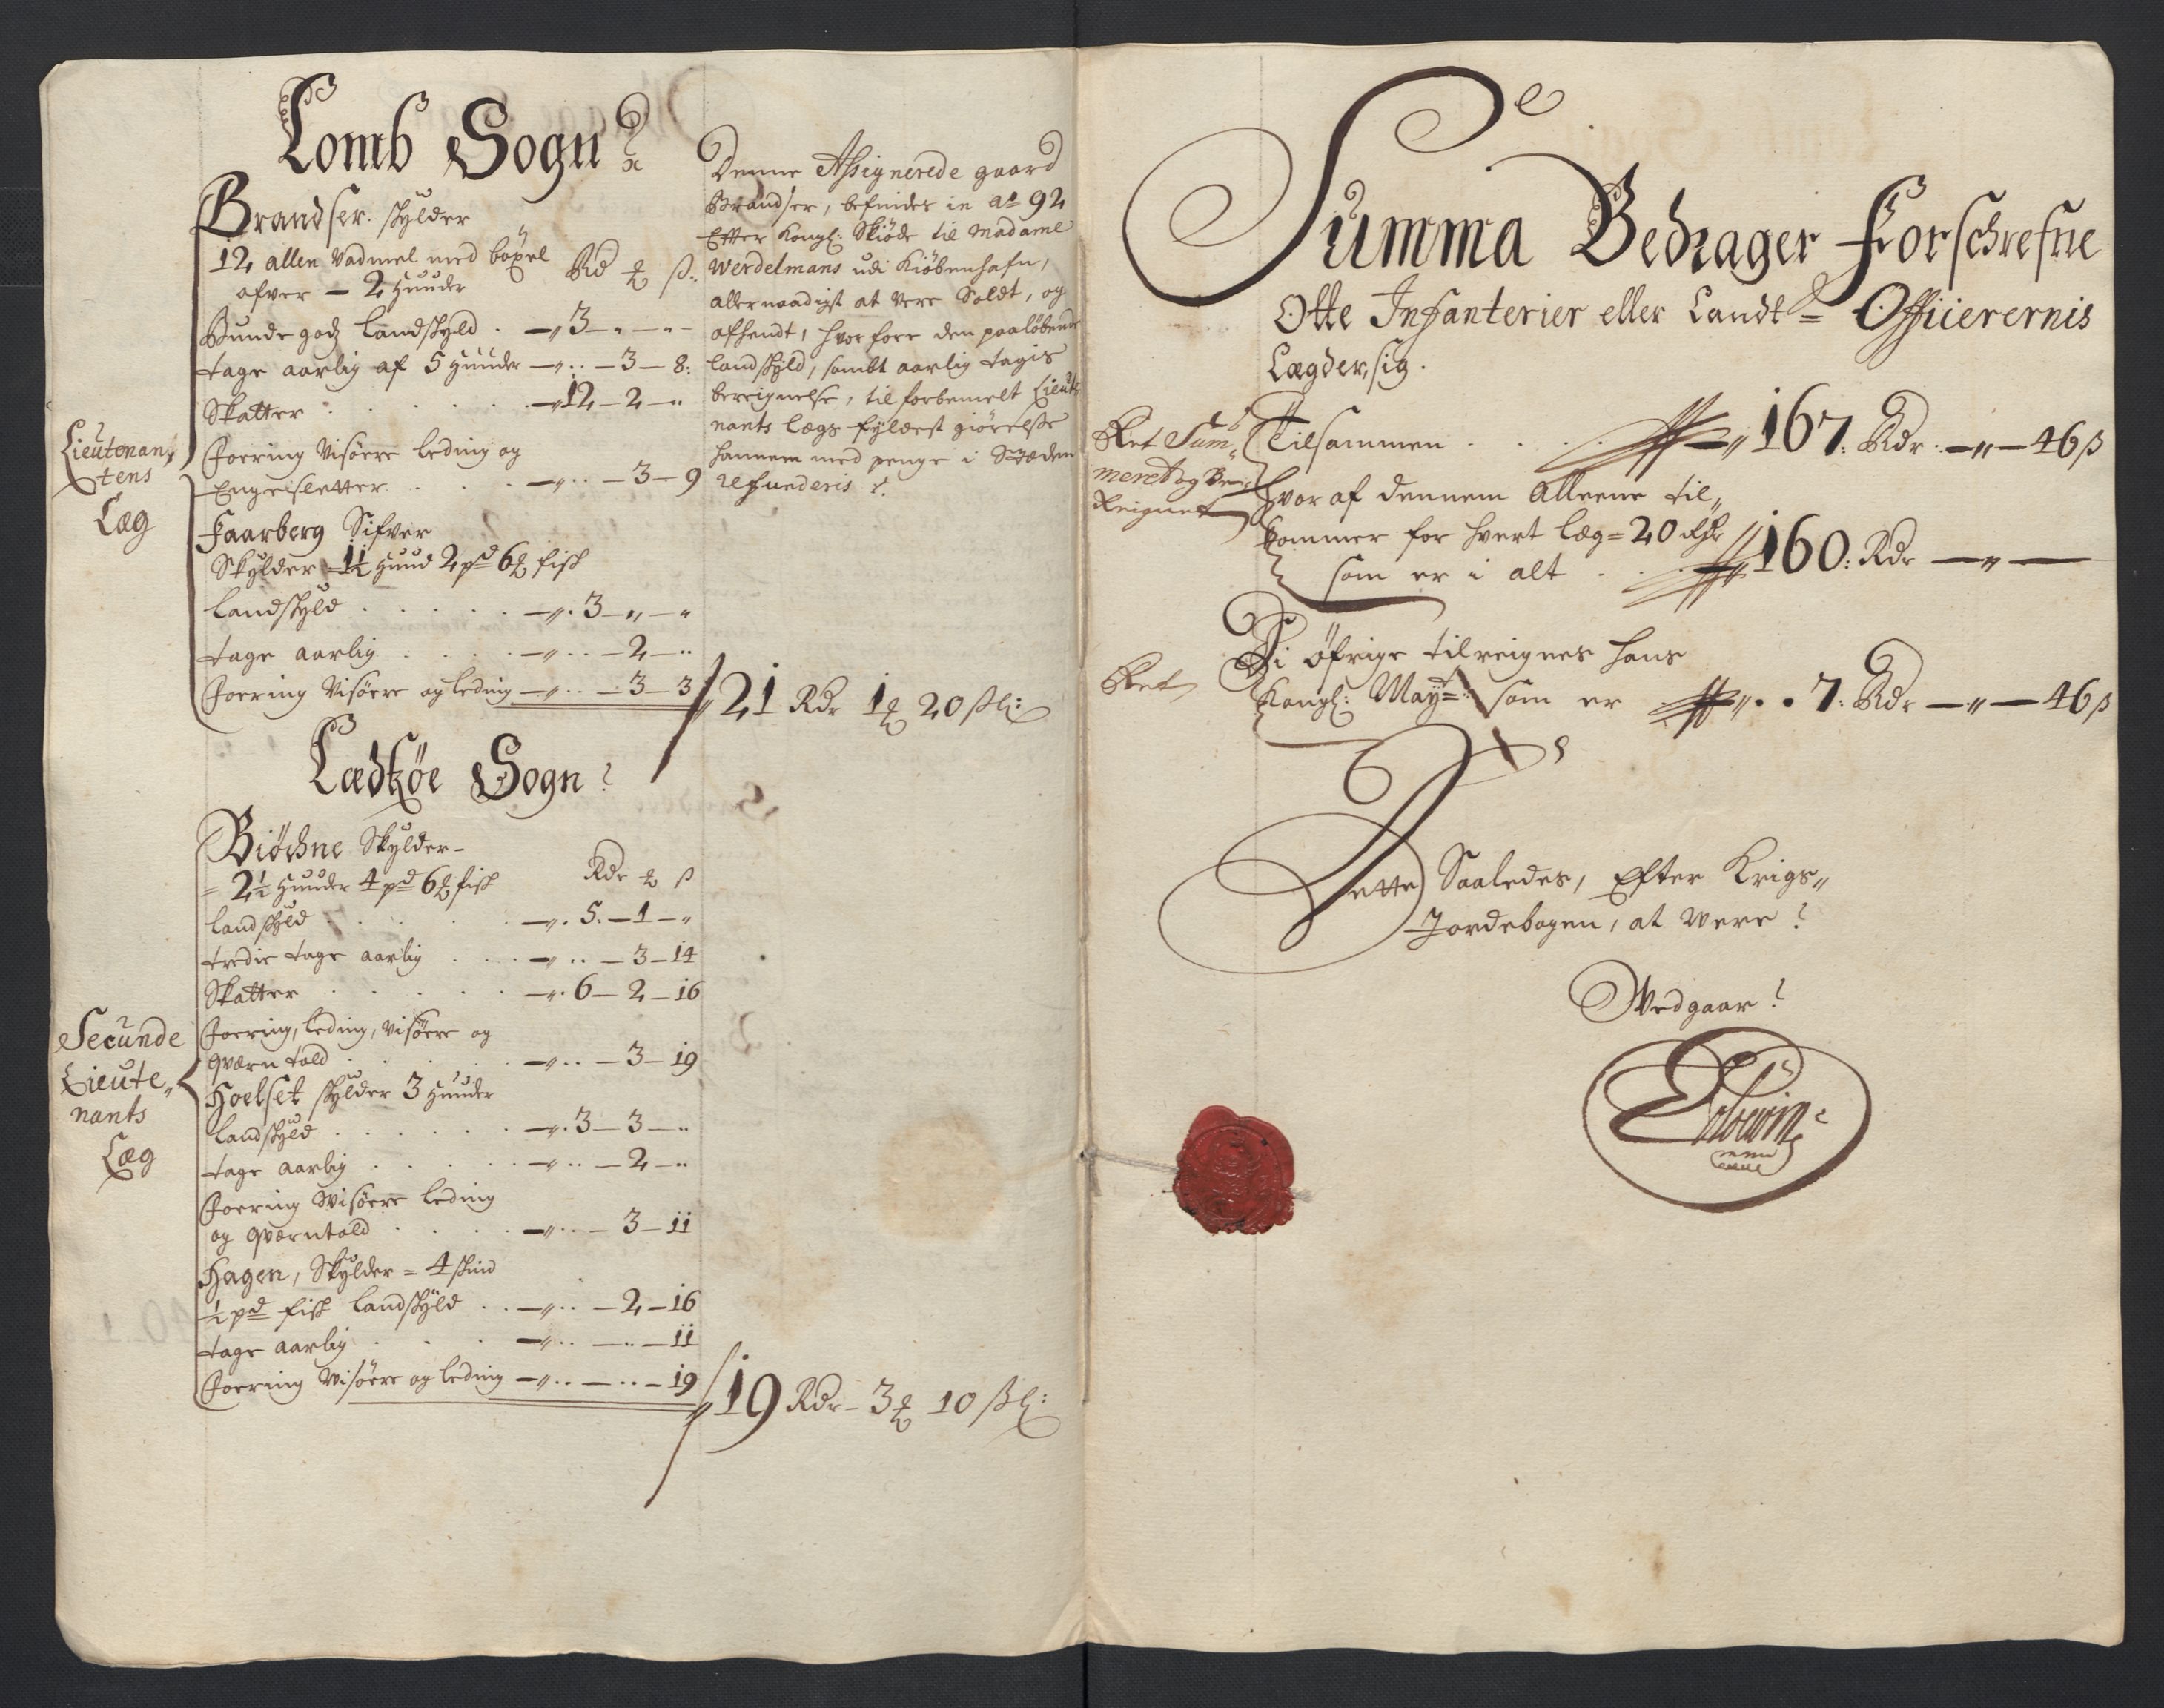 Lomb Sogn
Brandser skylder
12 allen Vadmel med böxel
ofver – 2 Huuder
Rd ß
Bunde godz landskyld . 3 – „ – „
tage aarlig af 5 Huuder – „ – 3 – 8
Skatter 12 – 2 – „
Lieutenan„
tens
Læg
Foering Visöere leding og
Engesletter – „ – 3 – 9
Faarberg Sifver
Skylder 1½ Huud 2 pd 6 fisk
landskyld – „ 3 – „ – „
tage aarlig – „ – 2 – „
Foering Visöere og leding – „ – 3 – 3
Denne Assignerede gaard
Brandser, befindes in ao 92
Efter Kongl: Skiöde til Madame
Werdelmans udi Kiöbenhafn,
allernaadigst at vere Soldt, og
afhendt, hvorfore den paaløbende
landskyld, sambt aarlig tagis
bereignelse, til forbemelt Lieute
nants lægs fyldest giörelsse
hannem med penge i Stæden
refunderis
21 Rdr 1 20 ß
Lædkøe Sogn
Biöchne Skylder –
= 2½ Huuder 4 pd 6 fisk
Rdr ß
landskyld – „ 5 – 1 – „
tredie tage aarlig – „ – 3 – 14
Skatter – „ 6 – 2 – 16
Secunde
Lieute„
nants
Læg
Foering, leding, visöere og
qværn told – „ – 3 – 19
Hoelset skylder 3 Huuder
landskyld – „ 3 – 3 – „
tage aarlig – „ – 2 – „
Foering Visöere leding
og qværntold – „ – 3 – 11
Hagen, Skylder = 4 skind
½ pd fisk landskyld – „ – 2 – 16
tage aarlig – „ – „ – 11
Foering Visöere og leding – „ – „ – 19
19 Rdr – 3 10 ß
Summa Bedrager Forschrefne
Otte Infanterier eller Landt = Officierernis
Lægder, sig.
Ret Sum„
meret og Be„
Reignet
Tilsammen 167: Rdr – „ – 46 ß
Hvor af dennem alleene til„
kommer for hvert læg = 20 Rdr
som er i alt 160: Rdr – „ –
Ret
Di öfrige tilreignes hans
Kongl: Mayt: som er 7: Rdr – „ – 46 ß
Dette Saaledes, Efter Krigs„
Jordebogen, at were
Wedgaar